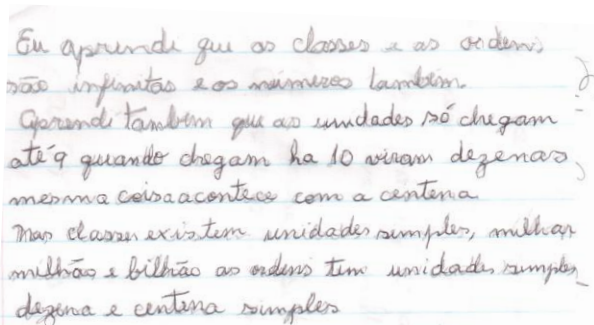 Eu aprendi que as classes e as ordens
são infinitas e os números também.
Aprendi também que as unidades só chegam
até 9 quando chegam ha 10 viram dezenas,
mesma coisa acontece com a centena.
Mas classes existem unidades simples, milhar
milhão e bilhão as ordens tem unidades simples
dezena e centena simples